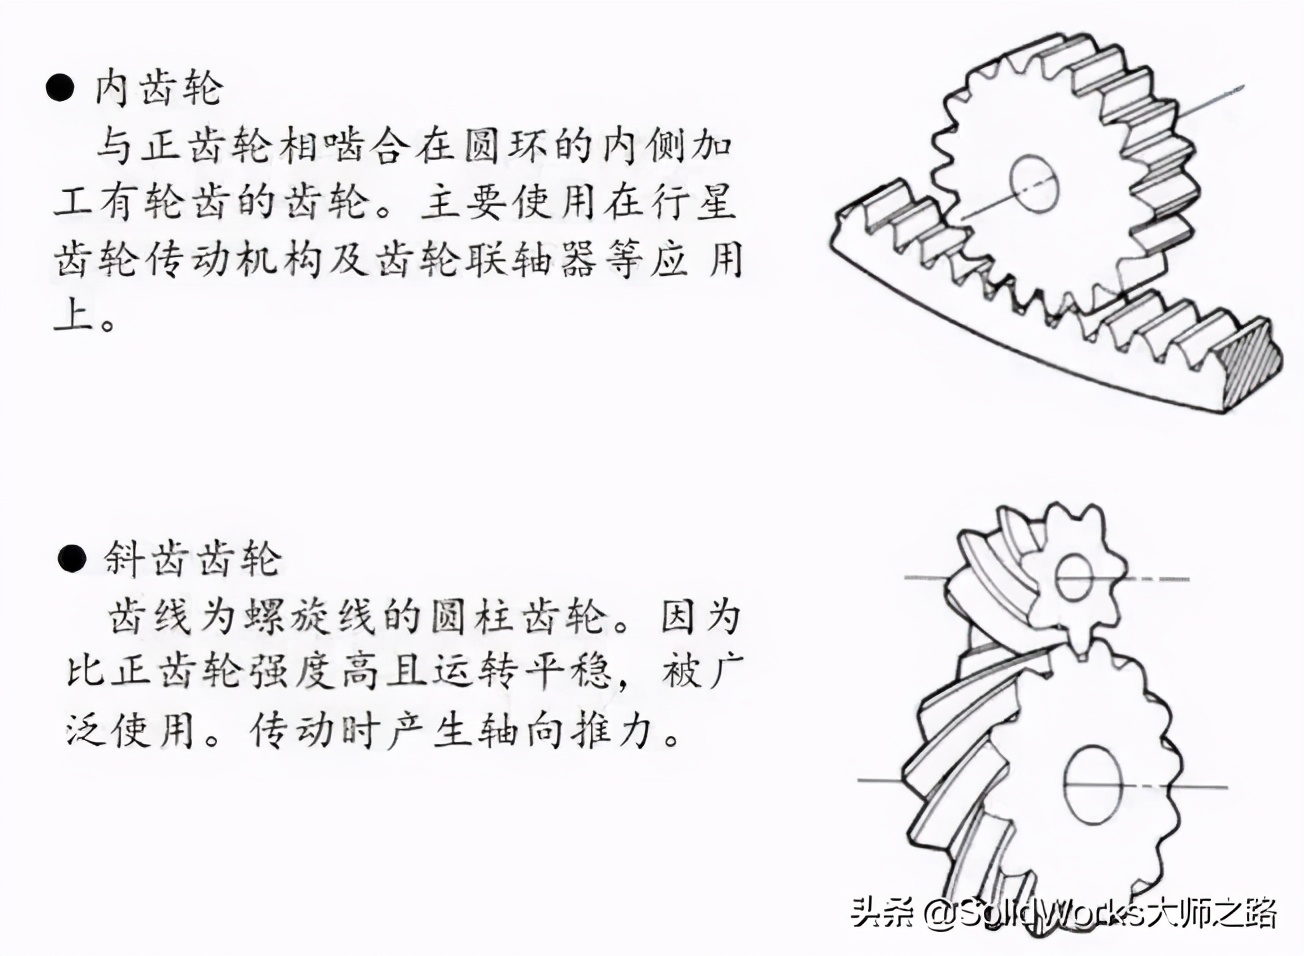 ● 内齿轮
与正齿轮相啮合在圆环的内侧加
工有轮齿的齿轮。主要使用在行星
齿轮传动机构及齿轮联轴器等应 用
上。
● 斜齿齿轮
齿线为螺旋线的圆柱齿轮。因为
比正齿轮强度高且运转平稳，被广
泛使用。传动时产生轴向推力。
头条 @SolidWorks大师之路